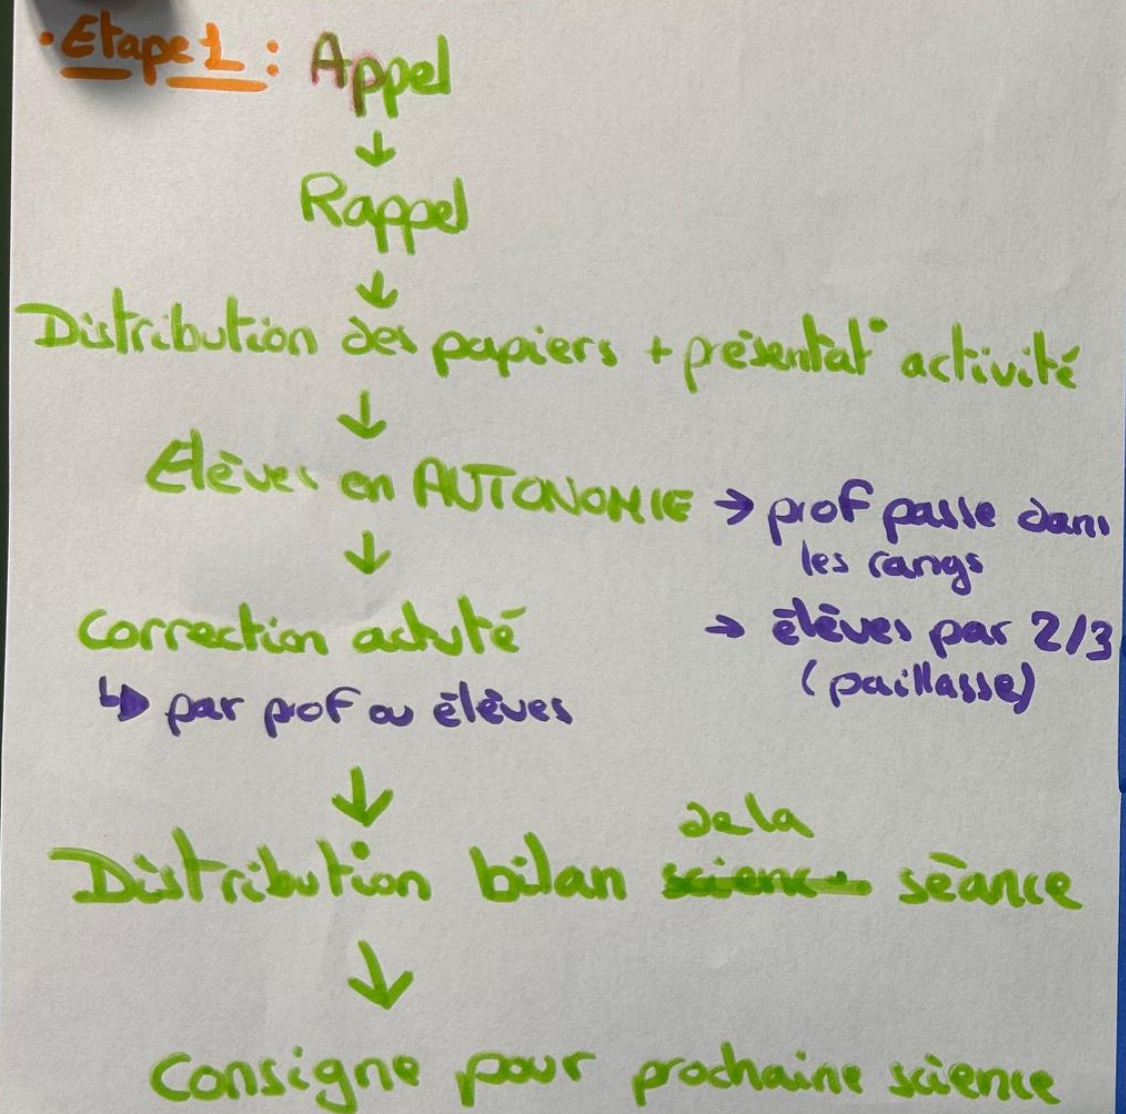 • Etape 1 : Appel
↓
Rappel
↓
Distribution des papiers + présentat° activité
↓
Elèves en AUTONOMIE → prof passe dans
les rangs
↓
→ élèves par 2/3
(paillasse)
Correction actvté
↳ par prof ou élèves
↓
de la
Distribution bilan scienc séance
↓
Consigne pour prochaine science